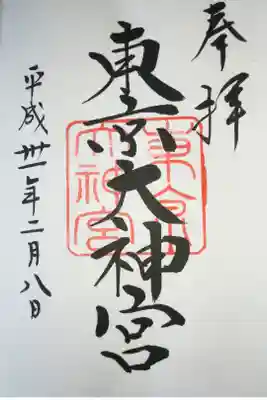 奉拝
東京大神宮
東京大神宮
平成卅一年二月八日